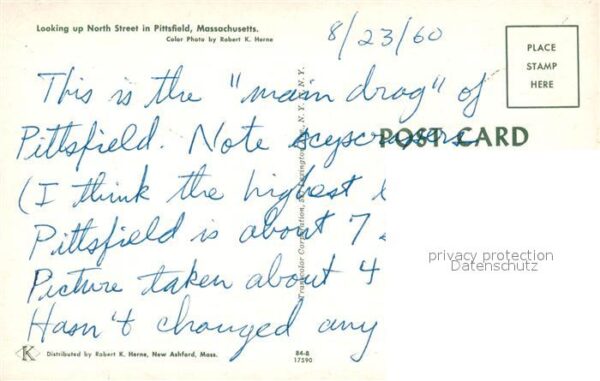 Looking up North Street in Pittsfield, Massachusetts.
Color Photo by Robert K. Herne
8/23/60
PLACE
STAMP
HERE
This is the "main drag" of
Pittsfield. Note scyscrapers
POST CARD
(I think the highest
Pittsfield is about 7
Picture taken about 4
Hasn't changed any
privacy protection
Datenschutz
K
Distributed by Robert K. Herne, New Ashford, Mass.
84-8
17590